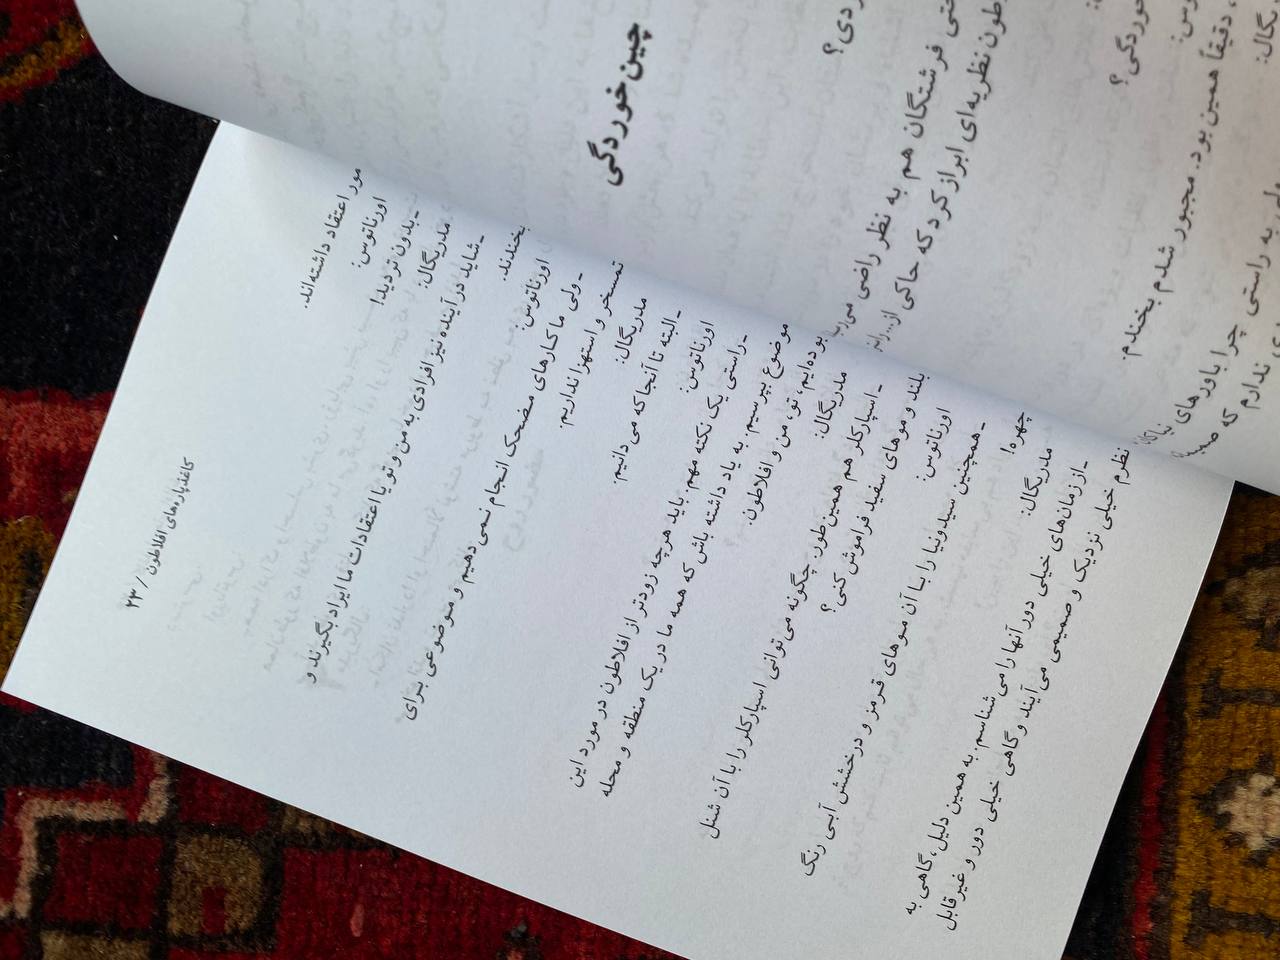 چین خوردگی
فرشتگان هم به نظر راضی
نظریه‌ای ابراز کرد که حاکی از...
دقیقاً همین بود. مجبور شدم بخندم.
به راستی چرا باورهای
ندارم که
کاغذپاره‌های افلاطون / ۲۳
مورد اعتقاد داشته‌اند.
اورناتوس:
ـ بدون تردید!
مدریگال:
ـ شاید در آینده نیز افرادی به من و تو یا اعتقادات ما ایراد بگیرند و
بخندند.
اورناتوس:
ـ ولی ما کارهای مضحک انجام نمی‌دهیم و موضوعی برای
تمسخر و استهزا نداریم.
مدریگال:
ـ البته تا آنجا که می‌دانیم.
اورناتوس:
ـ راستی یک نکته مهم. باید هرچه زودتر از افلاطون در مورد این
موضوع بپرسیم. به یاد داشته باش که همه ما در یک منطقه و محله
بوده‌ایم، تو، من و افلاطون.
مدریگال:
ـ اسپارکلر هم همین‌طور. چگونه می‌توانی اسپارکلر را با آن شنل
بلند و موهای سفید فراموش کنی؟
اورناتوس:
ـ همچنین سیدونیا را با آن موهای قرمز و درخشش آبی رنگ
چهره!
مدریگال:
ـ از زمان‌های خیلی دور آنها را می‌شناسم. به همین دلیل، گاهی به
نظرم خیلی نزدیک و صمیمی می‌آیند و گاهی خیلی دور و غیرقابل